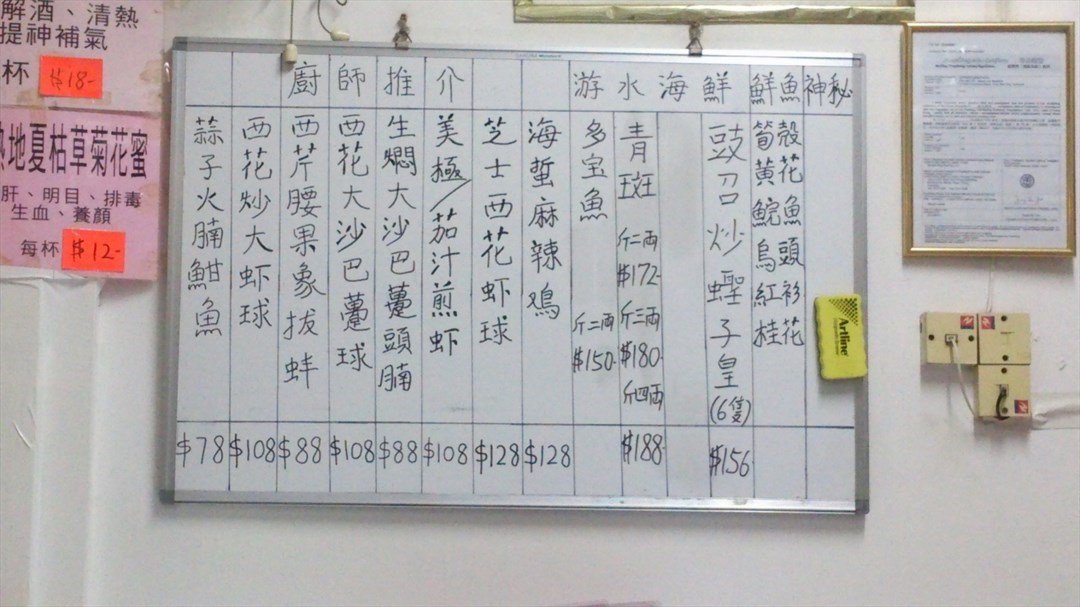 解酒、清熱
提神補氣
杯 $18-
熱地夏枯草菊花蜜
肝、明目、排毒
生血、養顏
每杯 $12-
廚師推介
游水海鮮
鮮魚
神秘
蒜子火腩魽魚
$78
西花炒大虾球
$108
西芹腰果象拔蚌
$88
西花大沙巴躉球
$108
生燜大沙巴躉頭腩
$88
美極/茄汁煎虾
$108
芝士西花虾球
$128
海蜇麻辣鸡
$128
多宝魚
斤二両
$150-
青斑
斤二両
$172-
斤三両
$180-
斤四両
$188-
豉召炒蟶子皇
(6隻)
$156
筍殼
黃花
鯇魚
烏頭
紅衫
桂花
Artline